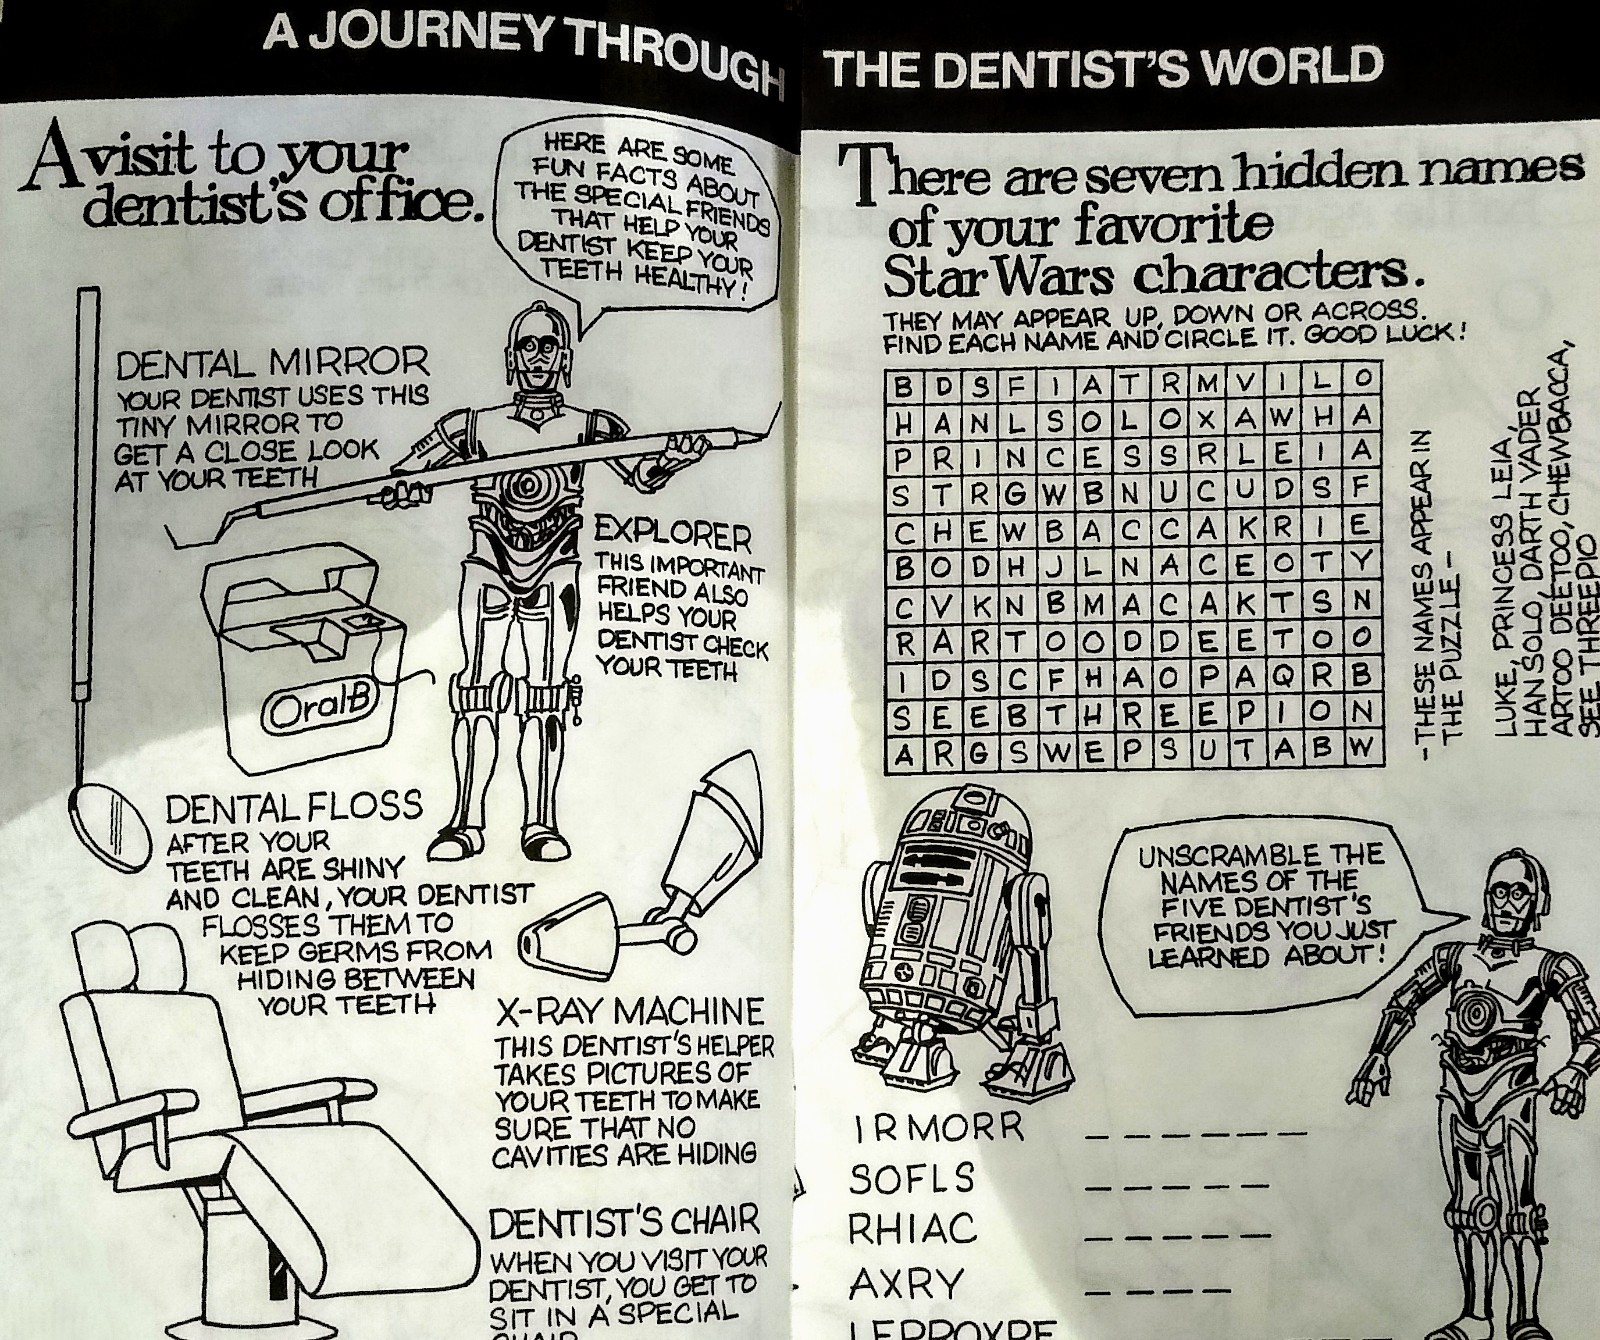 A JOURNEY THROUGH
A visit to your
dentist's office.
HERE ARE SOME
FUN FACTS ABOUT
THE SPECIAL FRIENDS
THAT HELP YOUR
DENTIST KEEP YOUR
TEETH HEALTHY!
DENTAL MIRROR
YOUR DENTIST USES THIS
TINY MIRROR TO
GET A CLOSE LOOK
AT YOUR TEETH
EXPLORER
THIS IMPORTANT
FRIEND ALSO
HELPS YOUR
DENTIST CHECK
YOUR TEETH
OralB
DENTAL FLOSS
AFTER YOUR
TEETH ARE SHINY
AND CLEAN, YOUR DENTIST
FLOSSES THEM TO
KEEP GERMS FROM
HIDING BETWEEN
YOUR TEETH
X-RAY MACHINE
THIS DENTIST'S HELPER
TAKES PICTURES OF
YOUR TEETH TO MAKE
SURE THAT NO
CAVITIES ARE HIDING
DENTIST'S CHAIR
WHEN YOU VISIT YOUR
DENTIST, YOU GET TO
SIT IN A SPECIAL
CHAIR
THE DENTIST'S WORLD
There are seven hidden names
of your favorite
Star Wars characters.
THEY MAY APPEAR UP, DOWN OR ACROSS.
FIND EACH NAME AND CIRCLE IT. GOOD LUCK!
B D S F I A T R M V I L O
H A N L S O L O X A W H A
P R I N C E S S R L E I A
S T R G W B N U C U D S F
C H E W B A C C A K R I E
B O D H J L N A C E O T Y
C V K N B M A C A K T S N
R A R T O O D D E E T O O
I D S C F H A O P A Q R B
S E E B T H R E E P I O N
A R G S W E P S U T A B W
-THESE NAMES APPEAR IN
THE PUZZLE-
LUKE, PRINCESS LEIA,
HAN SOLO, DARTH VADER
ARTOO DEETOO, CHEWBACCA,
SEE THREEPIO
UNSCRAMBLE THE
NAMES OF THE
FIVE DENTIST'S
FRIENDS YOU JUST
LEARNED ABOUT!
IRMORR _ _ _ _ _ _
SOFLS _ _ _ _ _
RHIAC _ _ _ _ _
AXRY _ _ _ _
LERROXPE